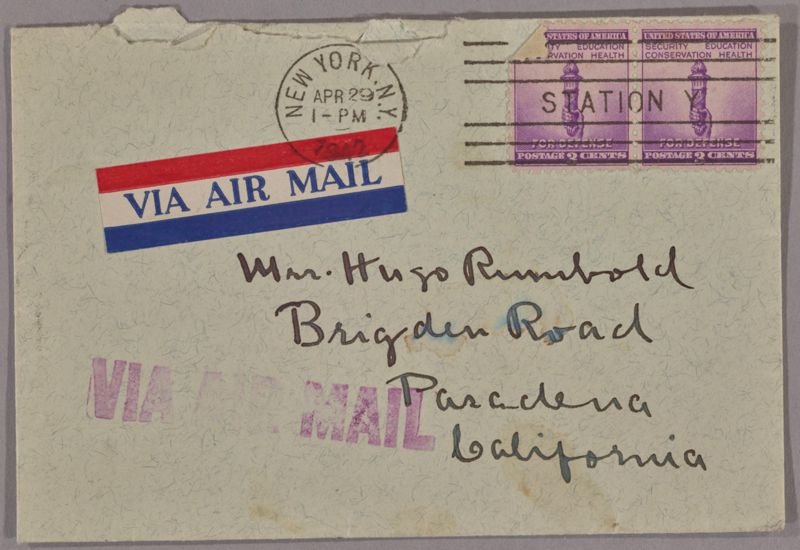 NEW YORK, N.Y.
APR 29
1-PM
STATION Y
STATES OF AMERICA
EDUCATION
HEALTH
FOR DEFENSE
POSTAGE 3 CENTS
UNITED STATES OF AMERICA
SECURITY EDUCATION
CONSERVATION HEALTH
FOR DEFENSE
POSTAGE 3 CENTS
VIA AIR MAIL
Mrs. Hugo Rumbold
Brigden Road
Pasadena
California
VIA AIR MAIL